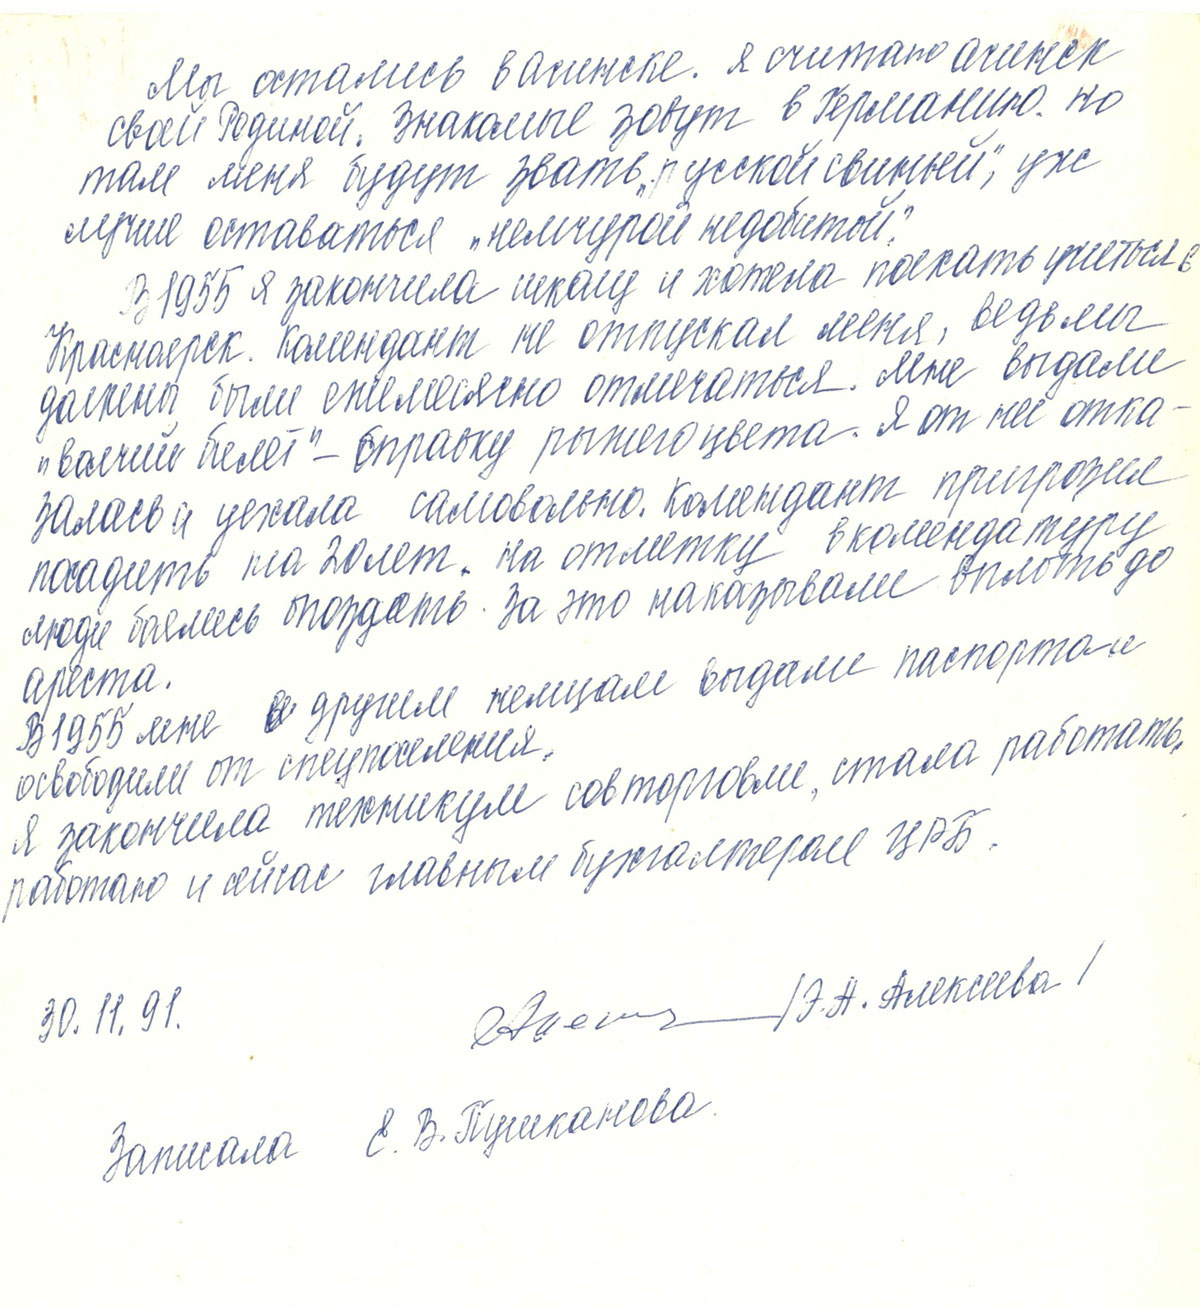 Мы остались в Ачинске. Я считаю Ачинск
своей Родиной. Знакомые зовут в Германию. Но
там меня будут звать „русской свиньей", уж
лучше оставаться „немчурой недобитой".
В 1955 я закончила школу и хотела поехать учиться в
Красноярск. Комендант не отпускал меня, ведь мы
должны были ежемесячно отмечаться. Мне выдали
"волчий билет" – справку рыжего цвета. Я от неё отка-
залась и уехала самовольно. Комендант пригрозил
посадить на 20 лет. На отметку в комендатуру
люди боялись опоздать. За это наказывали вплоть до
ареста.
В 1955 мне и другим немцам выдали паспорта и
освободили от спецпоселения.
Я закончила техникум совторговли, стала работать,
работаю и сейчас главным бухгалтером ЦРБ.
30.11.91.
/Э.А. Алексеева/
Записала Е.В. Пушканова.